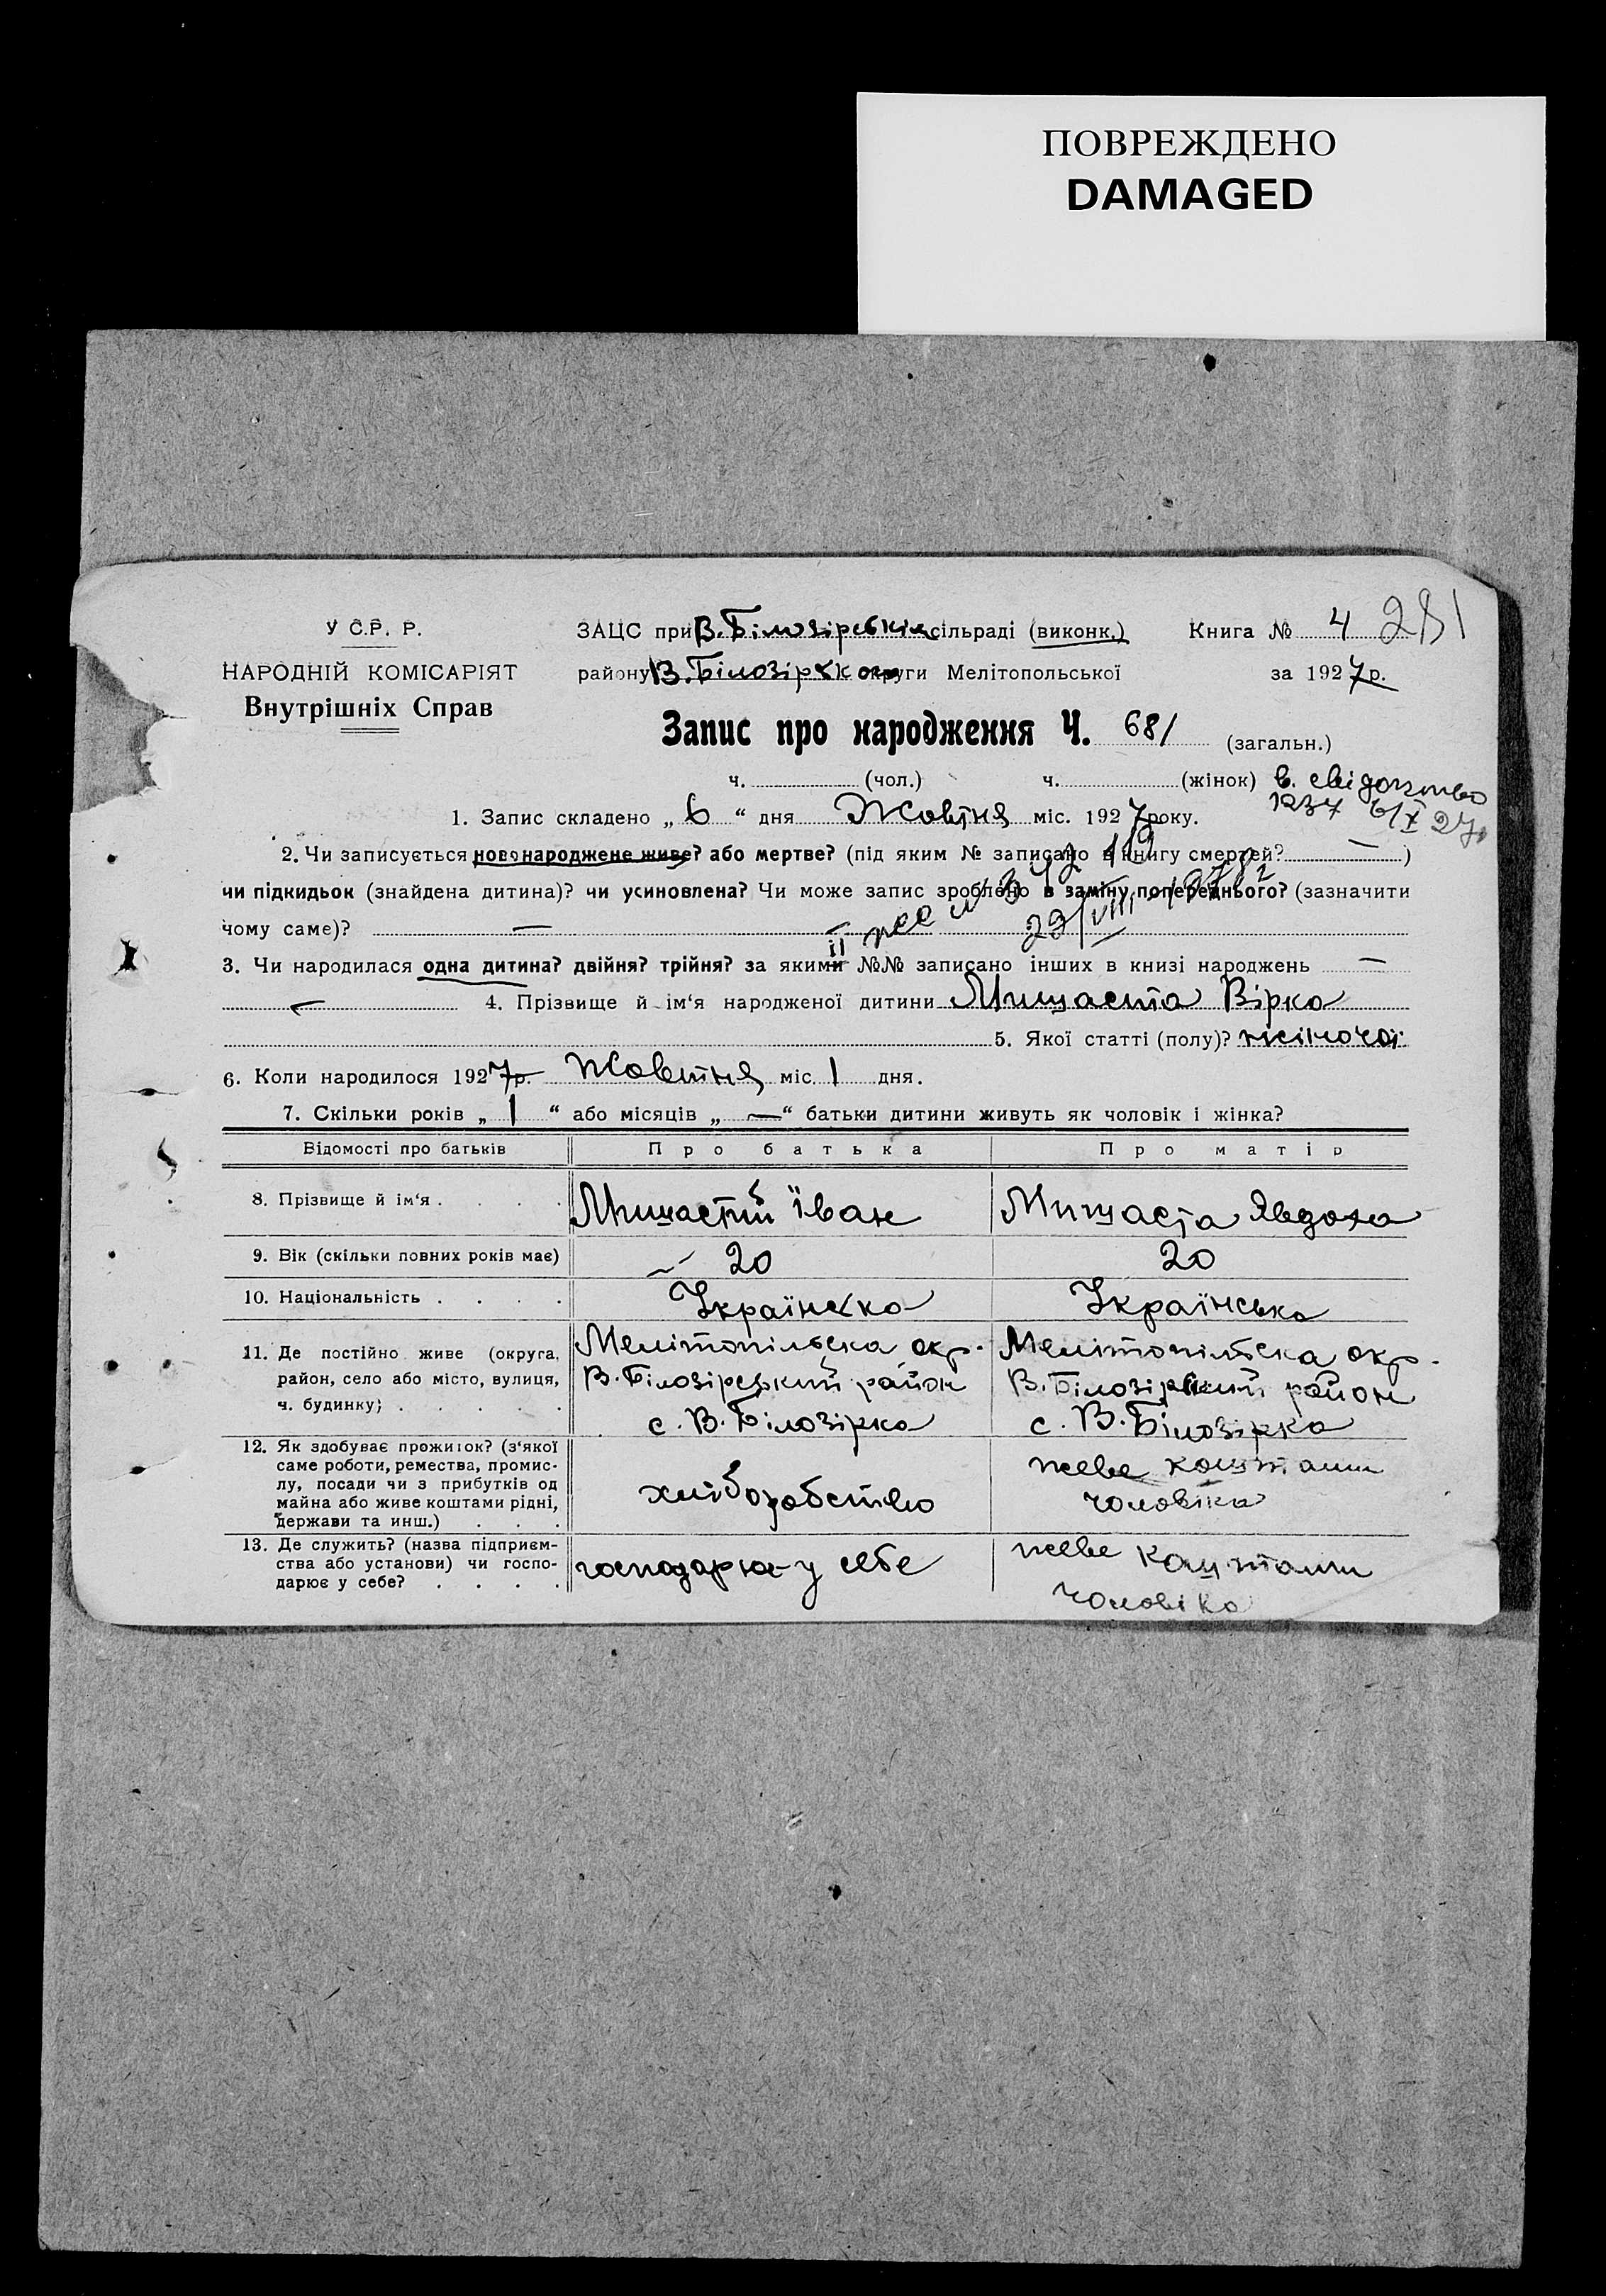 ПОВРЕЖДЕНО
DAMAGED
У С.Р. Р.
НАРОДНІЙ КОМІСАРІЯТ
Внутрішніх Справ
ЗАЦС при В. Білозірській сільраді (виконк.)
Книга № 4 281
району В. Білозірського округи Мелітопольської за 1927 р.
Запис про народження Ч. 681 (загальн.)
ч. (чол.) ч. (жінок)
в. свідоцтво
1237 6/X 27
1. Запис складено „ 6 “ дня Жовтня міс. 1927 року.
2. Чи записується новонароджене живе? або мертве? (під яким № записано в книгу смертей? — )
чи підкидьок (знайдена дитина)? чи усиновлена? Чи може запис зроблено в заміну попереднього? (зазначити
чому саме)? —
29/VIII
3. Чи народилася одна дитина? двійня? трійня? за якими №№ записано інших в книзі народжень —
4. Прізвище й ім‘я народженої дитини Мищаста Вірка
5. Якої статті (полу)? жіночої
6. Коли народилося 1927 р. Жовтня міс. 1 дня.
7. Скільки років „ 1 “ або місяців „ — “ батьки дитини живуть як чоловік і жінка?
Відомості про батьків Про батька Про матір
8. Прізвище й ім‘я . . . . Мищастий Іван Мищаста Явдоха
9. Вік (скільки повних років має) 20 20
10. Національність . . . . Українська Українська
11. Де постійно живе (округа, Мелітопільська окр. Мелітопільська окр.
район, село або місто, вулиця, В. Білозірський район В. Білозірський район
ч. будинку) . . . . . с. В. Білозірка с. В. Білозірка
12. Як здобуває прожиток? (з‘якої
саме роботи, ремества, промис-
лу, посади чи з прибутків од
майна або живе коштами рідні,
держави та инш.) . . .
хліборобство
живе коштами
чоловіка
13. Де служить? (назва підприєм-
ства або установи) чи госпо-
дарює у себе? . . . .
господарює у себе
живе коштами
чоловіка